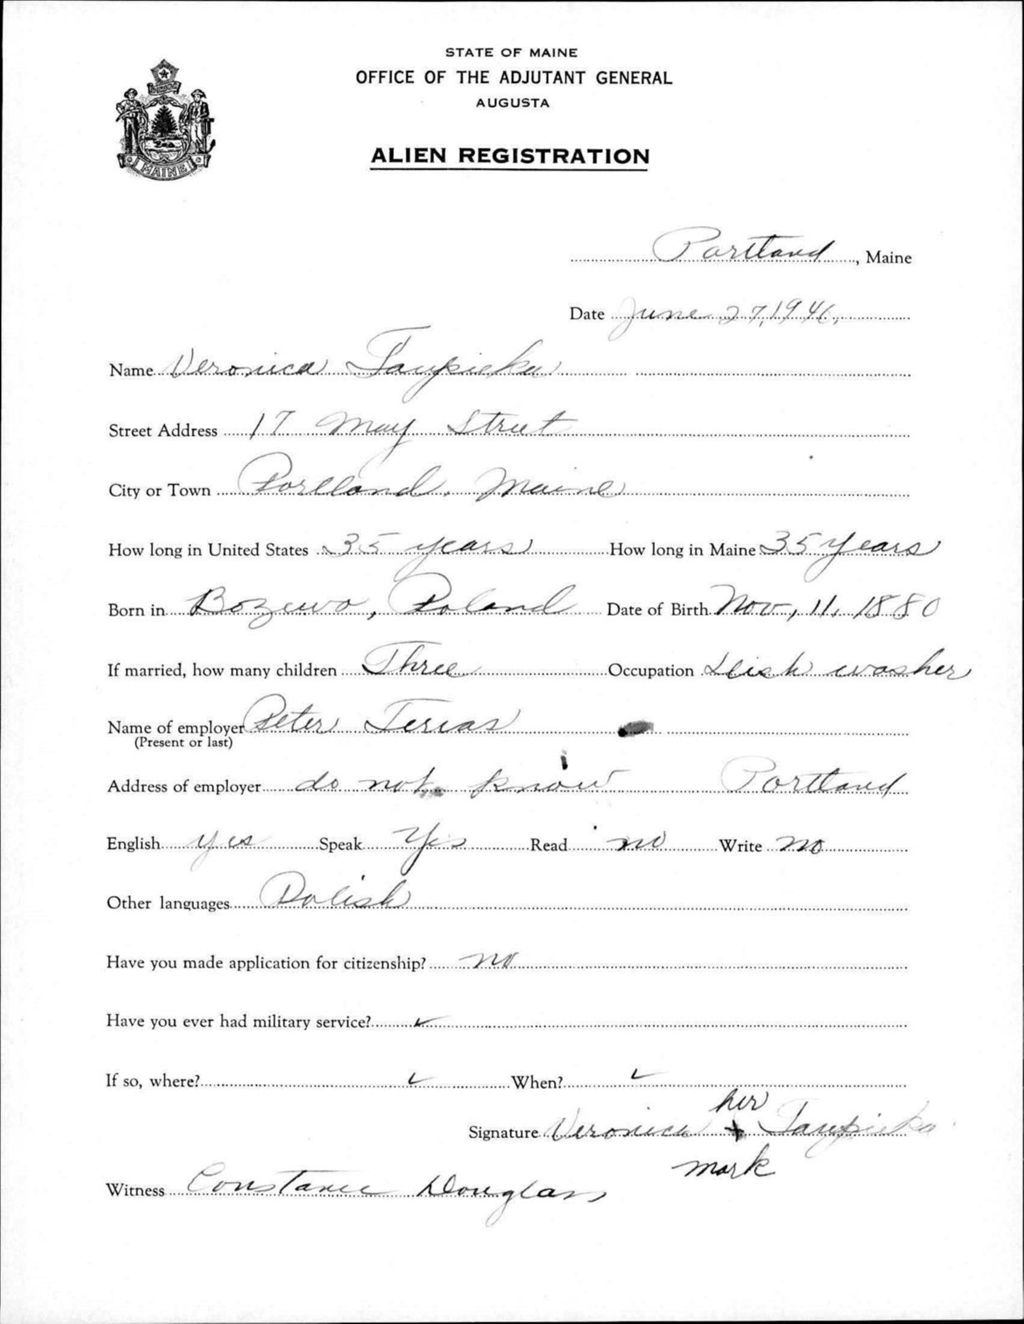 STATE OF MAINE
OFFICE OF THE ADJUTANT GENERAL
AUGUSTA
ALIEN REGISTRATION
MAINE
Portland, Maine
Date June 27, 1940
Name Veronica
Street Address 17 May Street
City or Town Portland, Maine
How long in United States 35 years How long in Maine 35 years
Born in Bozewo, Poland Date of Birth Nov, 11, 1880
If married, how many children Three Occupation Dish washer
Name of employer Peter Terias
(Present or last)
Address of employer do not know Portland
English yes Speak Yes Read no Write no
Other languages Polish
Have you made application for citizenship? no
Have you ever had military service? ✓
If so, where? ✓ When? ✓
her
Signature Veronica x
mark
Witness Constance Douglass